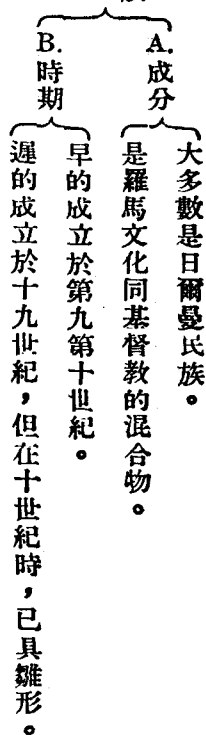 A.成分
大多數是日爾曼民族。
是羅馬文化同基督教的混合物。
B.時期
早的成立於第九第十世紀。
遲的成立於十九世紀，但在十世紀時，已具雛形。